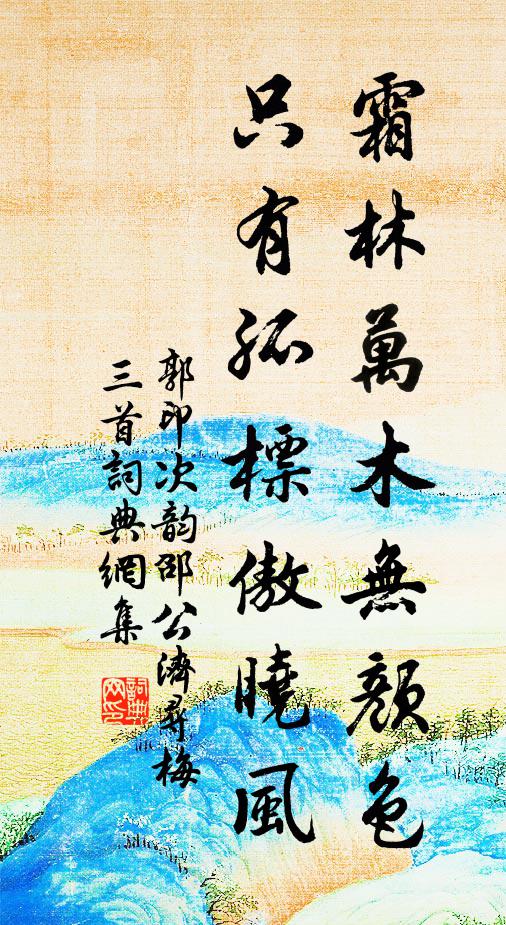 霜林萬木無顏色
只有孤標傲曉風
郭印次韵邵公濟尋梅
三首詞典網集
詞典网印